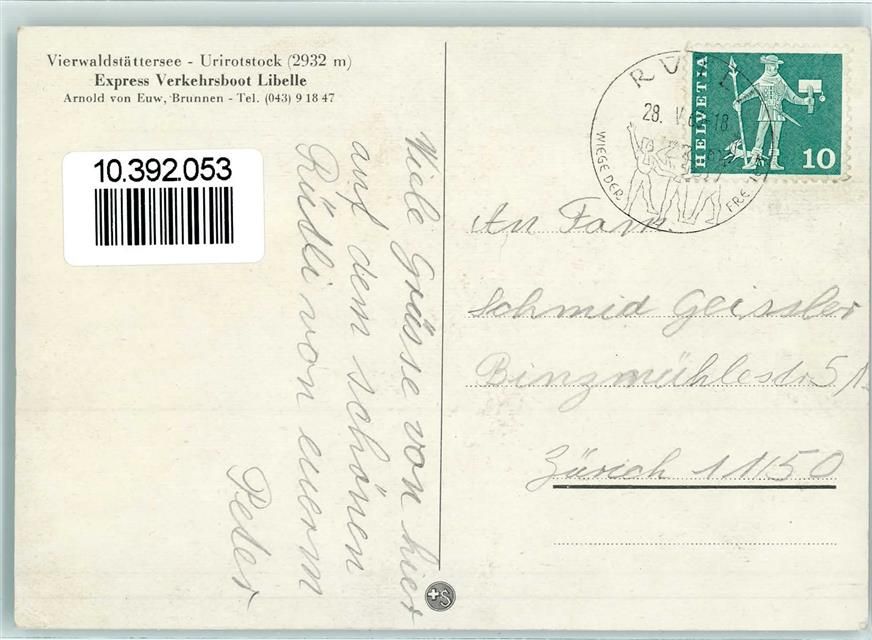 Vierwaldstättersee - Urirotstock (2932 m)
Express Verkehrsboot Libelle
Arnold von Euw, Brunnen - Tel. (043) 9 18 47
10.392.053
Viele Grüsse von hier
auf dem schönen
Rütli von euerm
Peter
28. V. -18
WIEGE DER
HELVETIA
10
An Fam.
Schmid Geissler
Binzmühlestr 51
Zürich 11/50
S